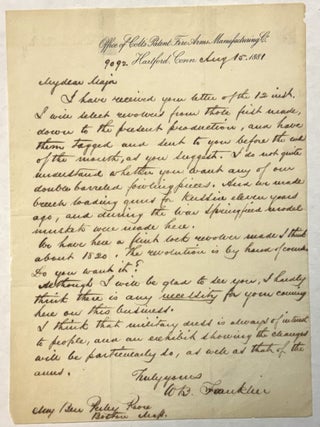 Office of Colt's Patent Fire Arms Manufacturing Co.
9092. Hartford, Conn Aug 15. 1881
My dear Major
I have received your letter of the 12 inst.
I will select revolvers from those first made,
down to the present production, and have
them tagged and sent to you before the end
of the month, as you suggest. I do not quite
understand whether you want any of our
double barreled fowling pieces. And we made
breech loading guns for Russia eleven years
ago, and during the War Springfield model
muskets were made here.
We have here a flint lock revolver made I think
about 1820. The revolution is by hand of course.
Do you want it?
Although I will be glad to see you, I hardly
think there is any necessity for your coming
here on this business.
I think that military dress is always of interest
to people, and an exhibit showing the changes
will be particularly so, as well as that of the
arms.
Truly yours
W B. Franklin
Maj Ben Perley Poore
Boston Mass.